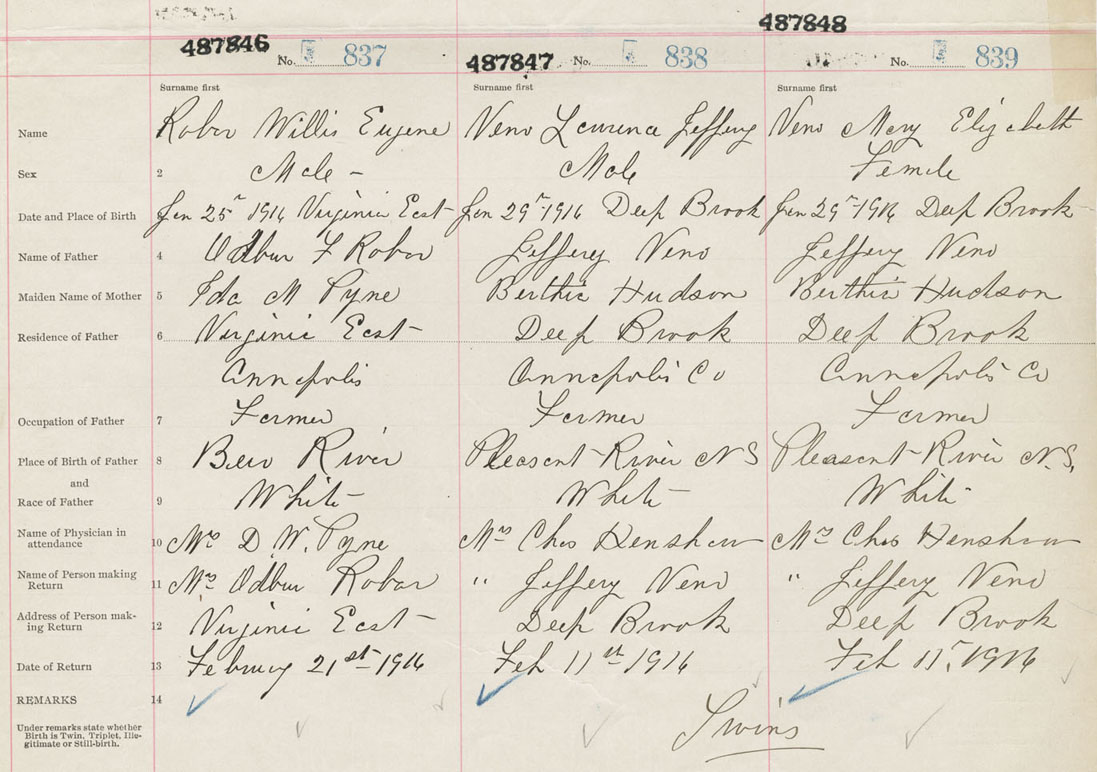 487846 487847 487848
No. 837 No. 838 No. 839
Surname first Surname first Surname first
Name Robar Willis Eugene Veno Laurence Jeffery Veno Mary Elizabeth
Sex 2 Male - Male Female
Date and Place of Birth Jan 25" 1916 Virginia East Jan 29" 1916 Deep Brook Jan 29" 1916 Deep Brook
Name of Father 4 Odbur F Robar Jeffery Veno Jeffery Veno
Maiden Name of Mother 5 Ida M Pyne Berthie Hudson Berthie Hudson
Residence of Father 6 Virginia East Deep Brook Deep Brook
Annapolis Annapolis Co Annapolis Co
Occupation of Father 7 Farmer Farmer Farmer
Place of Birth of Father 8 Bear River Pleasant River N S Pleasant River N.S.
and
Race of Father 9 White White White
Name of Physician in attendance 10 Mrs D. W. Pyne Mrs Chas Henshaw Mrs Chas Henshaw
Name of Person making Return 11 Mrs Odbur Robar " Jeffery Veno " Jeffery Veno
Address of Person making Return 12 Virginia East Deep Brook Deep Brook
Date of Return 13 February 21st 1916 Feb 11th 1916 Feb 11", 1916
REMARKS 14
Twins
Under remarks state whether
Birth is Twin, Triplet, Ille-
gitimate or Still-birth.